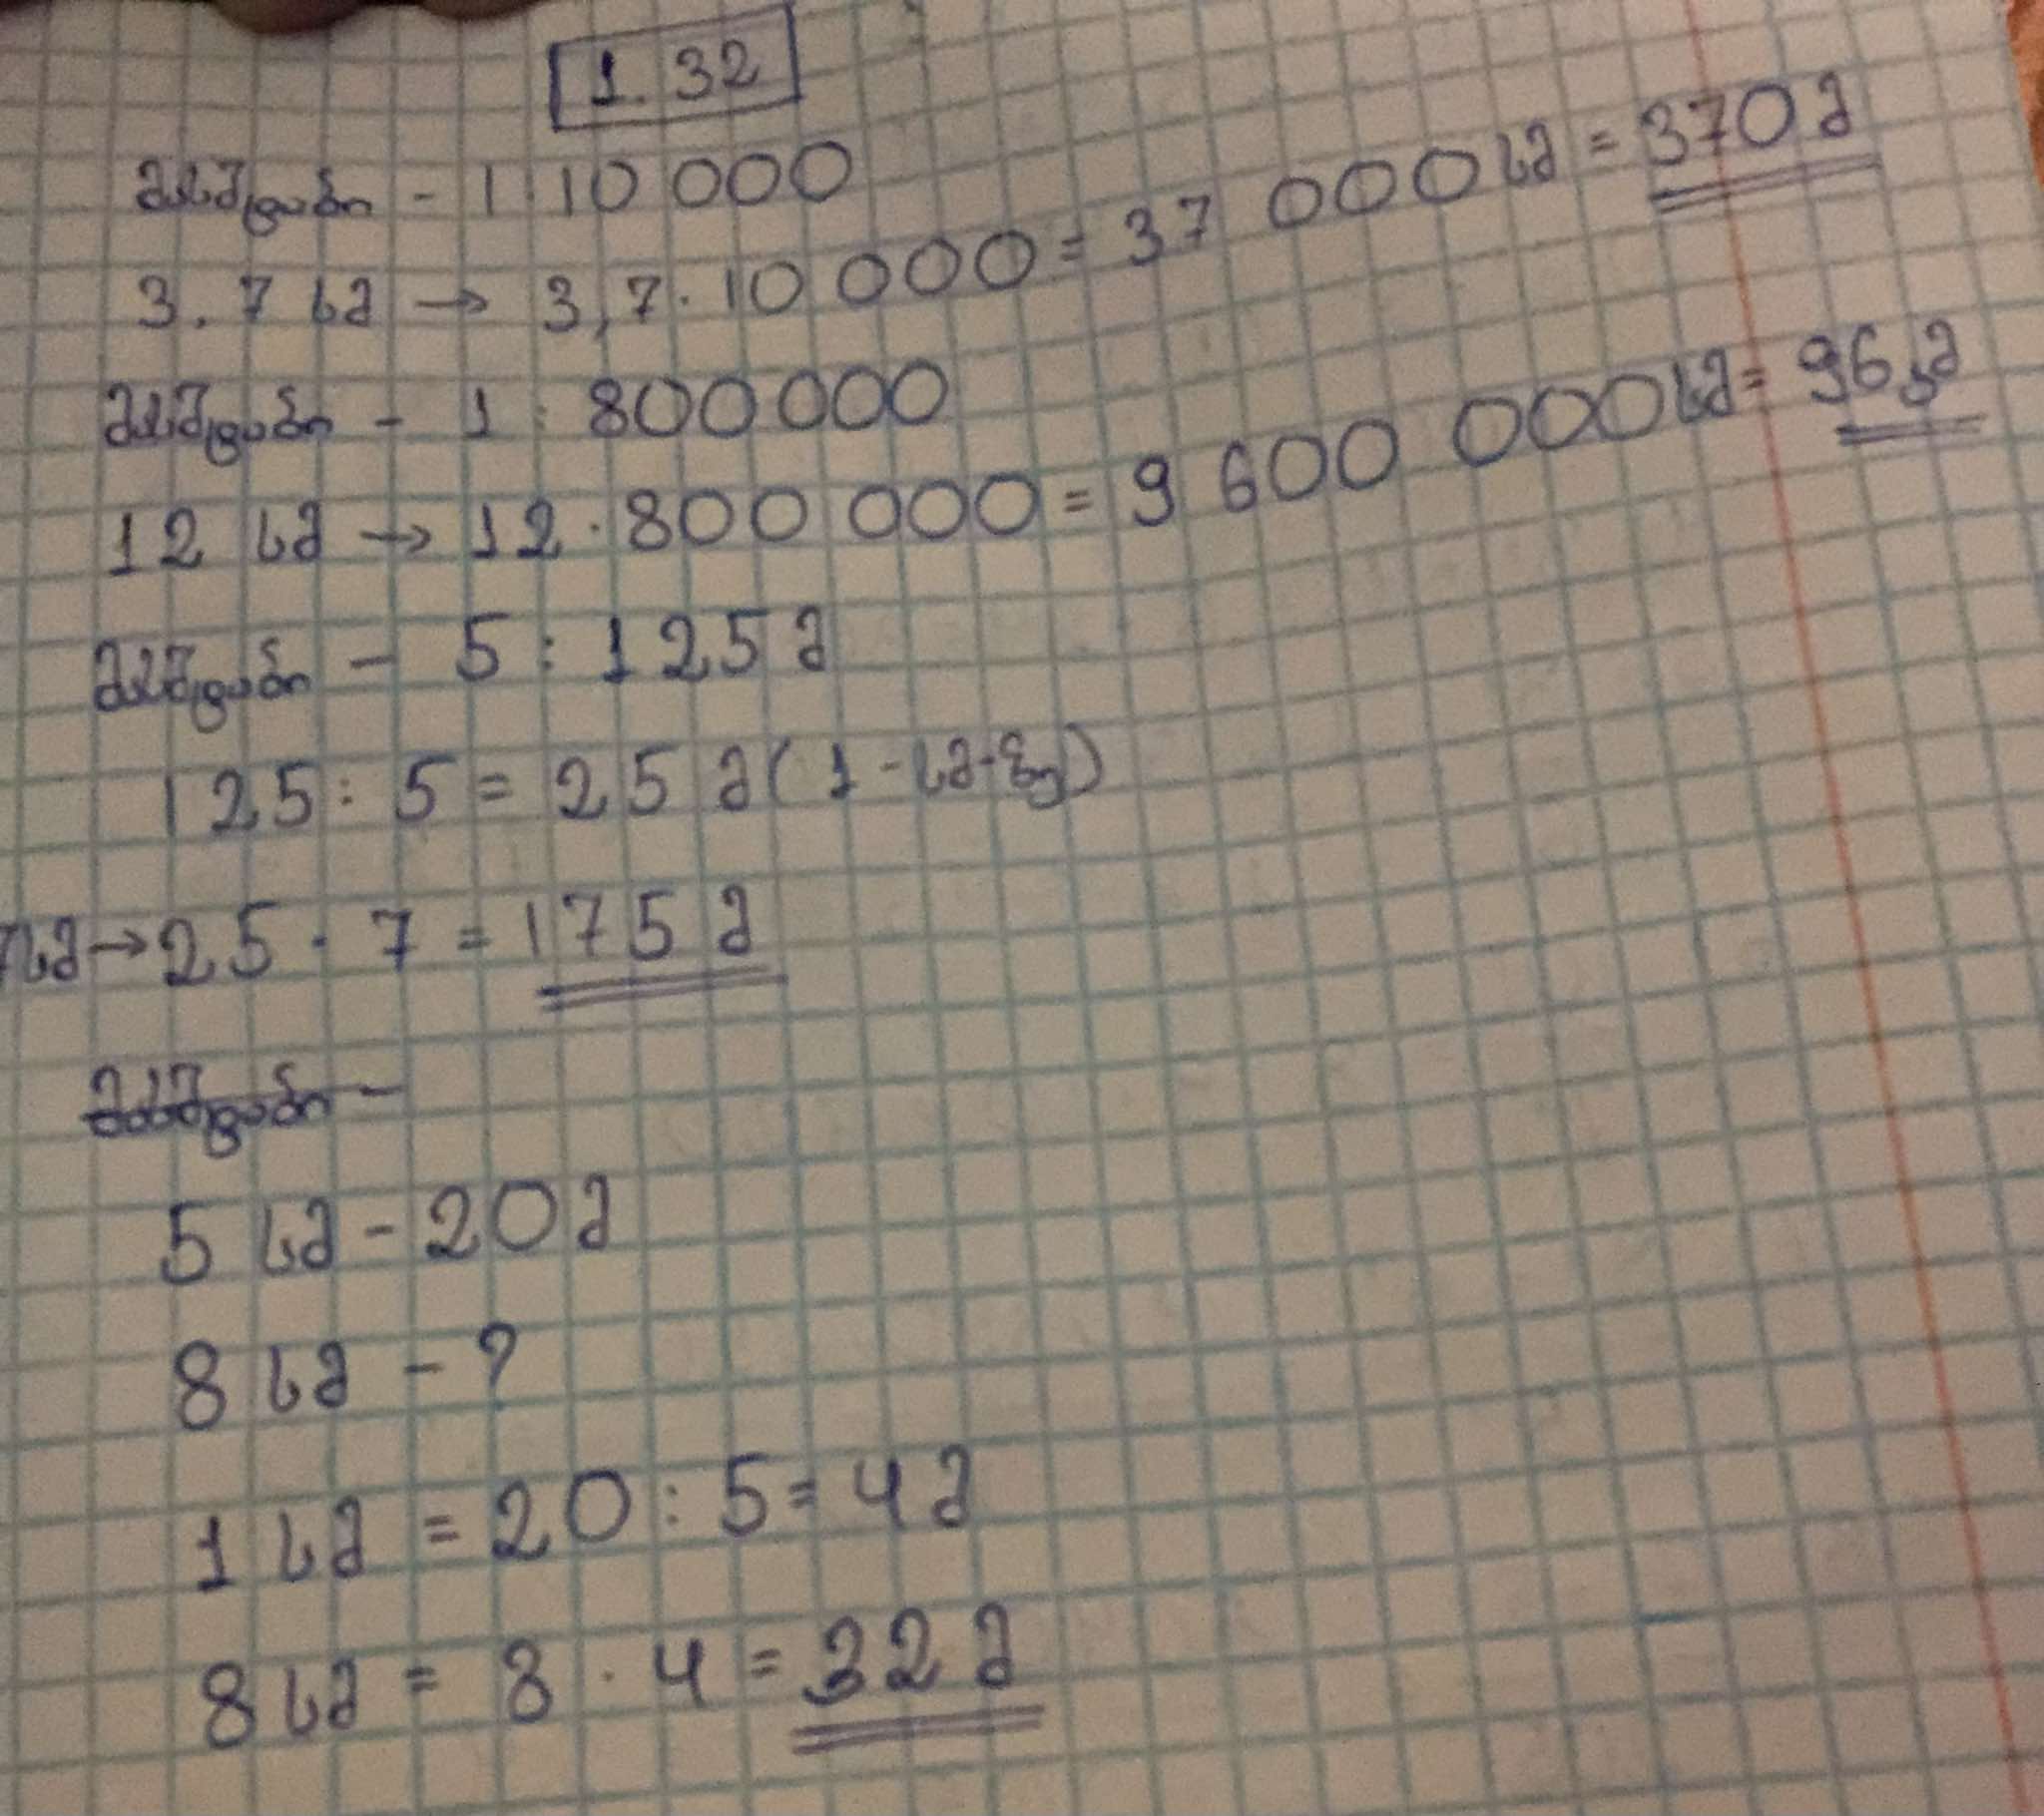 1.32
მასშტაბი - 1:10 000
3.7 სმ → 3,7·10 000 = 37 000 სმ = 370 მ
მასშტაბი - 1 : 800 000
12 სმ → 12·800 000 = 9 600 000 სმ = 96 კმ
მასშტაბი - 5 : 125 მ
125 : 5 = 25 მ (1-სმ-ზე)
7სმ → 25 · 7 = 175 მ
მასშტაბი -
5 სმ - 20 მ
8 სმ - ?
1 სმ = 20 : 5 = 4 მ
8 სმ = 8 · 4 = 32 მ